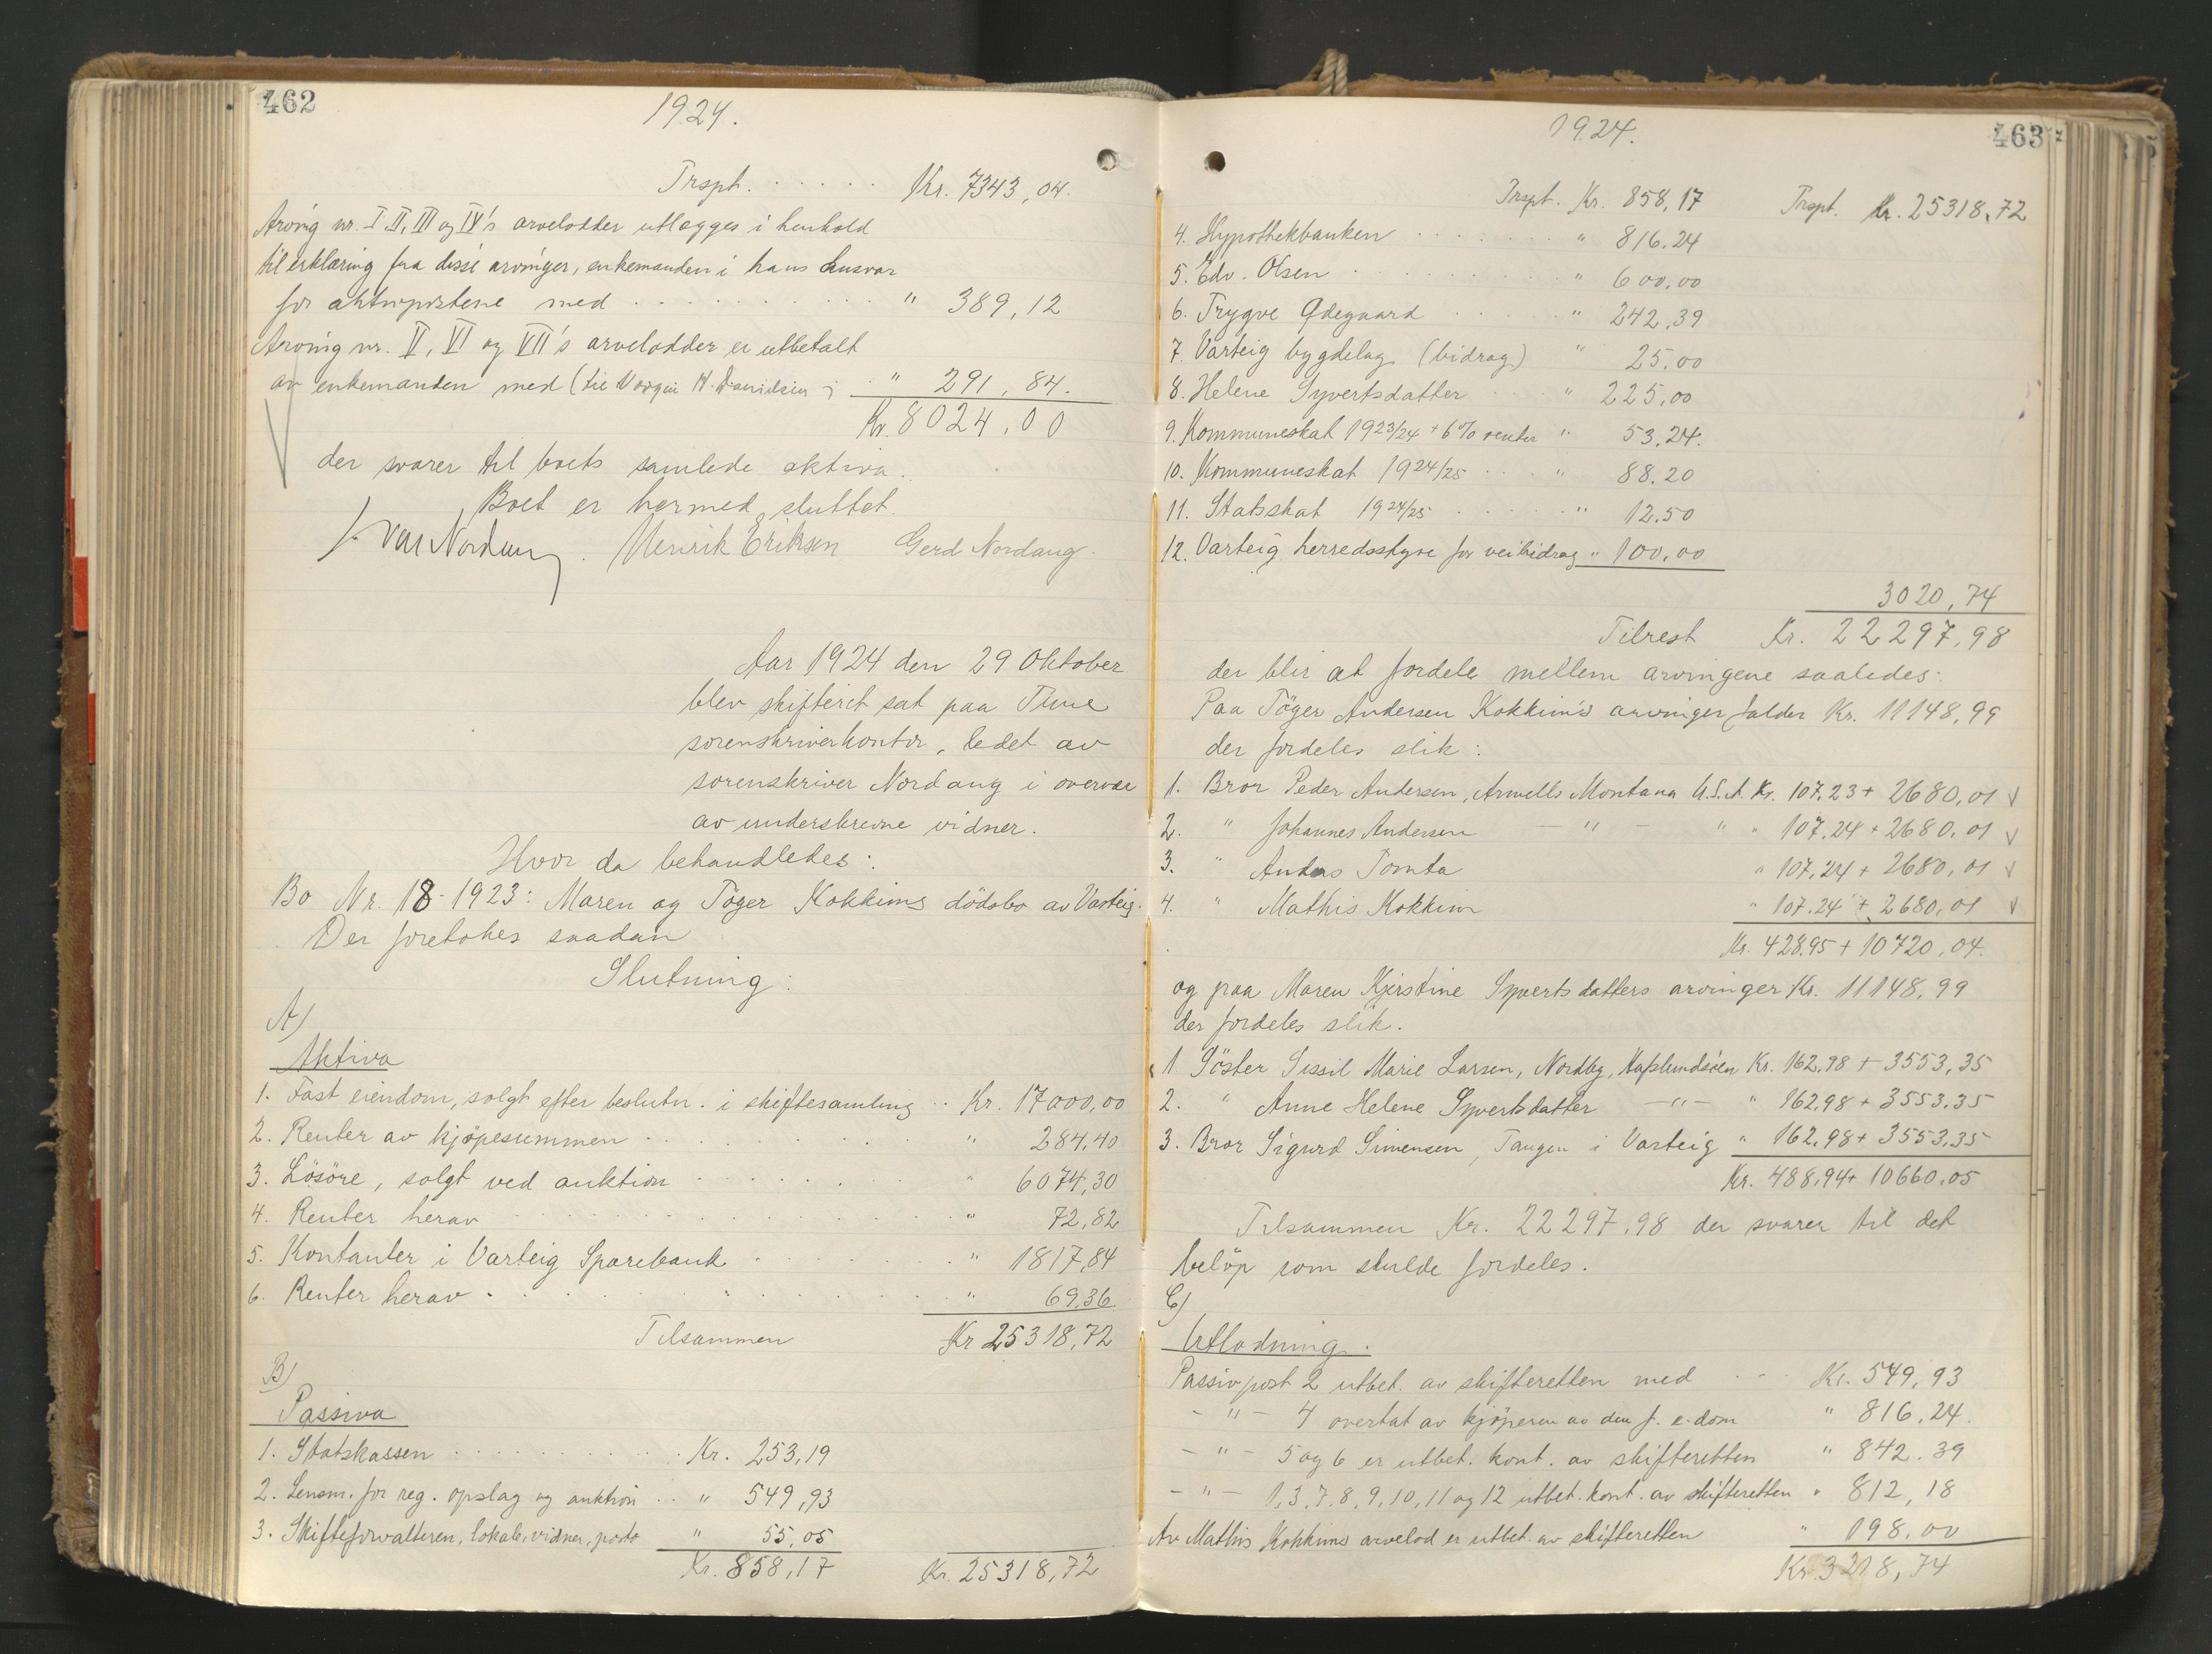 462
1924.
Trspt. . . . . . Kr. 7343,04.
Arving nr. I II, III og IV's arvelodder utlægges i henhold
til erklæring fra disse arvinger, enkemanden i hans ansvar
for aktivpostene med . . . . . . . . . . " 389,12
Arving nr. V, VI og VII's arvelodder er utbetalt
av enkemanden med (til H. Davidsen . " 291,84.
Kr. 8024,00
der svarer til boets samlede aktiva.
Boet er hermed sluttet.
Nordang. Henrik Eriksen Gerd Nordang.
Aar 1924 den 29 Oktober
blev skifteret sat paa Tune
sorenskriverkontor, ledet av
sorenskriver Nordang i overvær
av underskrevne vidner.
Hvor da behandledes:
Bo Nr. 18-1923: Maren og Töger Kokkims dödsbo av Varteig.
Der foretokes saadan
Slutning:
A)
Aktiva
1. Fast eiendom, solgt efter beslutn. i skiftesamling . . Kr. 17000,00
2. Renter av kjöpesummen . . . . . . . " 284,40
3. Lösöre, solgt ved auktion . . . . . . . " 6074,30
4. Renter herav . . . . . . . . . . " 72,82
5. Kontanter i Varteig Sparebank . . . . . " 1817,84
6. Renter herav . . . . . . . . . . " 69,36
Tilsammen Kr 25318,72
B)
Passiva
1. Statskassen . . . . . . . . . Kr. 253,19
2. Lensm. for reg. opslag og auktion . . " 549,93
3. Skifteforvalteren, lokale, vidner, porto " 55,05
Kr. 858,17 Kr. 25318,72
463
1924.
Trspt. Kr. 858,17 Trspt. Kr. 25318,72
4. Hypothekbanken . . . . . . . " 816.24
5. Edv. Olsen . . . . . . . . . " 600,00
6. Trygve Ødegaard . . . . . " 242,39
7. Varteig bygdelag (bidrag) " 25,00
8. Helene Syvertsdatter . . . " 225,00
9. Kommuneskat 1923/24 + 6% renter " 53,24.
10. Kommuneskat 1924/25 . . . . " 88.20
11. Statsskat 1924/25 . . . . . . " 12.50
12. Varteig herredsstyre for veibidrag " 100,00
3020,74
Tilrest Kr. 22297,98
der blir at fordele mellem arvingene saaledes:
Paa Töger Andersen Kokkim's arvinger falder Kr. 11148,99
der fordeles slik:
1. Bror Peder Andersen, Armells Montana U.S.A. Kr. 107,23 + 2680,01 √
2. " Johannes Andersen — " — " " 107,24 + 2680,01 √
3. " Anders Tomta " 107,24 + 2680,01 √
4. " Mathis Kokkim " 107,24 + 2680,01 √
Kr. 428,95 + 10720,04.
og paa Maren Kjerstine Syvertsdatters arvinger Kr. 11148,99
der fordeles slik.
1. Söster Sissil Marie Larsen, Nordby, Hafslundsöen Kr. 162,98 + 3553,35
2. " Anne Helene Syvertsdatter — " — " 162,98 + 3553,35
3. Bror Sigurd Simensen, Tangen i Varteig " 162,98 + 3553,35
Kr. 488,94 + 10660,05
Tilsammen Kr. 22297,98 der svarer til det
belöp som skulde fordeles.
C)
Utlodning.
Passivpost 2 utbet. av skifteretten med . . . Kr. 549,93
- " - 4 overtat av kjöperen av den f. e-dom " 816,24.
- " - 5 og 6 er utbet. kont. av skifteretten " 842.39
- " - 1,3,7,8,9,10,11 og 12 utbet. kont. av skifteretten " 812,18
Av Mathis Kokkims arvelod er utbet. av skifteretten " 198,00
Kr. 3218,74